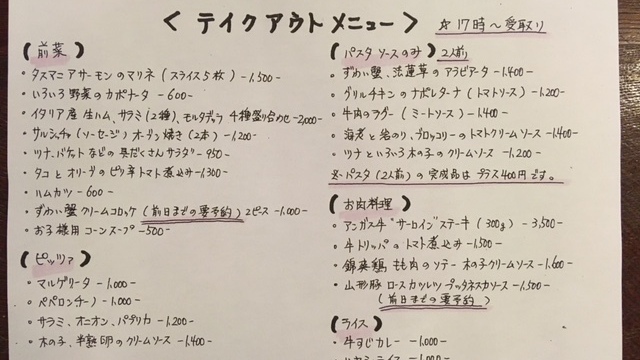 ＜ テイクアウトメニュー ＞ ☆17時〜受取り
(前菜)
・タスマニアサーモンのマリネ (スライス5枚) -1,500-
・いろいろ野菜のカポナータ -600-
・イタリア産 生ハム、サラミ(2種)、モルタデッラ 4種盛り合わせ -2,000-
・サルシッチャ(ソーセージ) オーブン焼き (2本) -1,200-
・ツナ、バケットなどの具だくさんサラダ -950-
・タコとオリーブのピリ辛トマト煮込み -1,300-
・ハムカツ -600-
・ずわい蟹クリームコロッケ (前日までの要予約) 2ピース -1,000-
・お子様用コーンスープ -500-
(ピッツァ)
・マルゲリータ -1,000-
・ペパロンチーノ -1,000-
・サラミ、オニオン、パプリカ -1,200-
・木の子、半熟卵のクリームソース -1,400-
(パスタソースのみ) 2人前
・ずわい蟹、法蓮草のアラビアータ -1,400-
・グリルチキンのナポレターナ (トマトソース) -1,200-
・牛肉のラグー (ミートソース) -1,400-
・海老と岩のり、ブロッコリーのトマトクリームソース -1,400-
・ツナといろいろ木の子のクリームソース -1,200-
※パスタ(2人前)の完成品はプラス400円です。
(お肉料理)
・アンガス牛"サーロイン"ステーキ (300g) -3,500-
・牛トリッパのトマト煮込み -1,500-
・錦爽鶏もも肉のソテー 木の子クリームソース -1,600-
・山形豚ロースカツレツ プッタネスカソース -1,500-
(前日までの要予約)
(ライス)
・牛すじカレー -1,000-